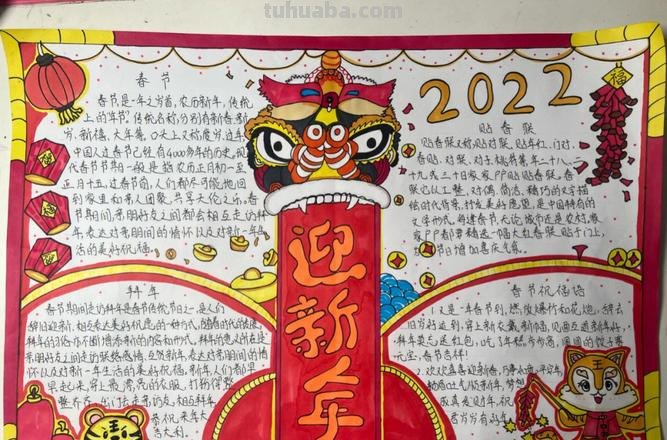 tuhuaba.com
2022
福
迎新年
春节
春节是一年之岁首,农历新年,传统
上的年节,传统名称,分别有新春、新
岁、新禧、大年等,口头上又称度岁、过年。
中国人过春节已经有4000多年的历史。现
代春节节期一般是指农历正月初一至
正月十五,过春节前,人们都尽可能地回
到家里和亲人团聚,共享天伦之乐,春
节期间,亲朋好友之间都会相互走访拜
年,表达对亲朋间的情怀以及对新一年生
活的美好祝福。
贴春联
贴春联又称贴对联,贴年红、门对、
春贴、对联、对子、桃符等,年二十八、二
十九或三十日家家户户贴贴春联,春
联它以工整、对偶、简洁、精巧的文字描
绘时代背景,抒发美好愿望,是中国特有的
文学形式,每逢春节无论城市还是农村,家
家户户都要精选一幅大红春联贴于门上,
节日增加喜庆气氛。
拜年
春节期间走访拜年是春节传统节日之一,是人们
辞旧迎新、相互表达美好祝愿的一种方式,随着时代的发展,
拜年的习俗亦不断增添新的内容和形式。拜年的意义所在是
亲朋好友之间走访联络感情、互贺新年,表达对亲朋间的情
怀以及对新一年生活的美好祝福。新年,人们都早
早起来,穿上最漂亮的衣服,打扮得整
整齐齐,出门去走亲访友,相互拜年,
恭祝来年大
吉大利。
春节祝福语
1.又是一年春节到,燃放爆竹和花炮,辞去
旧岁好运到,穿上新衣戴新帽,见面互道新年好,
拜年莫忘送红包,吃了年糕步步高,团团的饺子赛
元宝,春节吉祥!
2.欢欢喜喜迎新春,万事如意